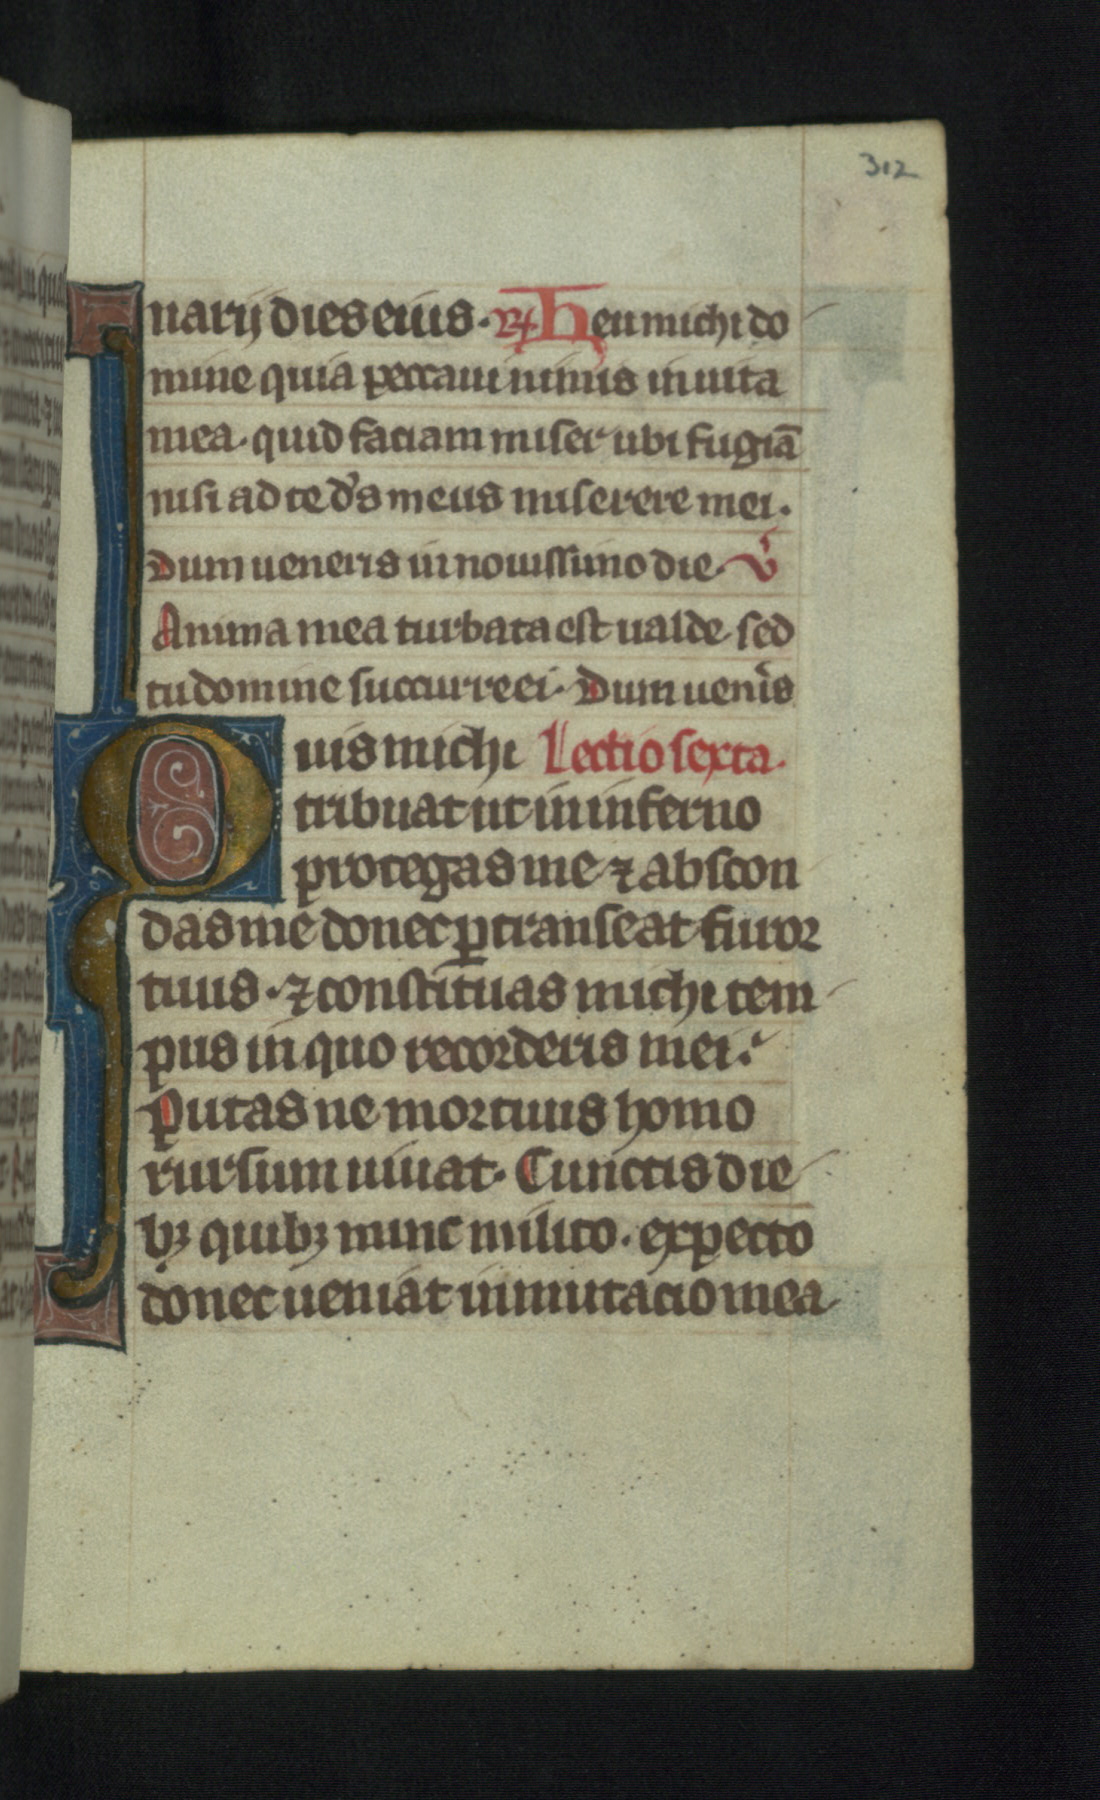 312
narij dies eius. ℟ Heu michi do
mine quia peccaui nimis in uita
mea. quid faciam miser ubi fugiā
nisi ad te dˢs meus miserere mei.
Dum ueneris in nouissimo die. ℣
Anima mea turbata est ualde. sed
tu domine succurre ei. Dum ueni̾s
Quis michi Lectio sexta.
tribuat ut in inferno
protegas me ⁊ abscon
das me donec ꝑtranseat furor
tuus. ⁊ constituas michi tem
pus in quo recorderis mei.
Putas ne mortuus homo
rursum uiuat. Cunctis die
bꝫ quibꝫ nunc milito. expecto
donec ueniat inmutacio mea